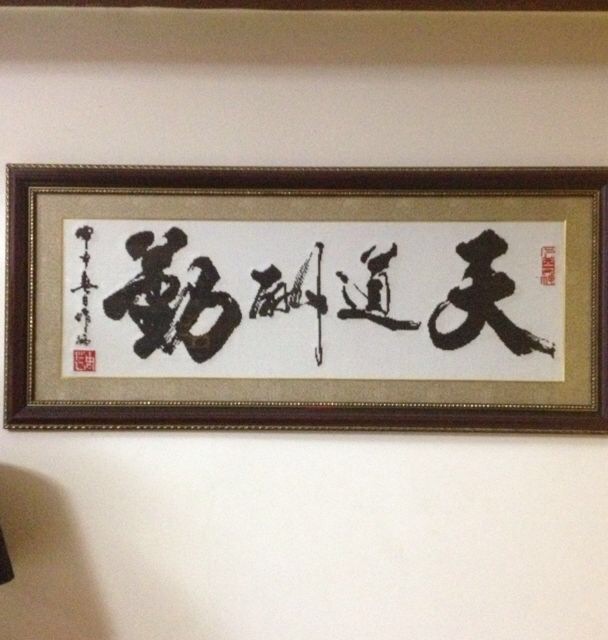 天道酬勤
甲申春月